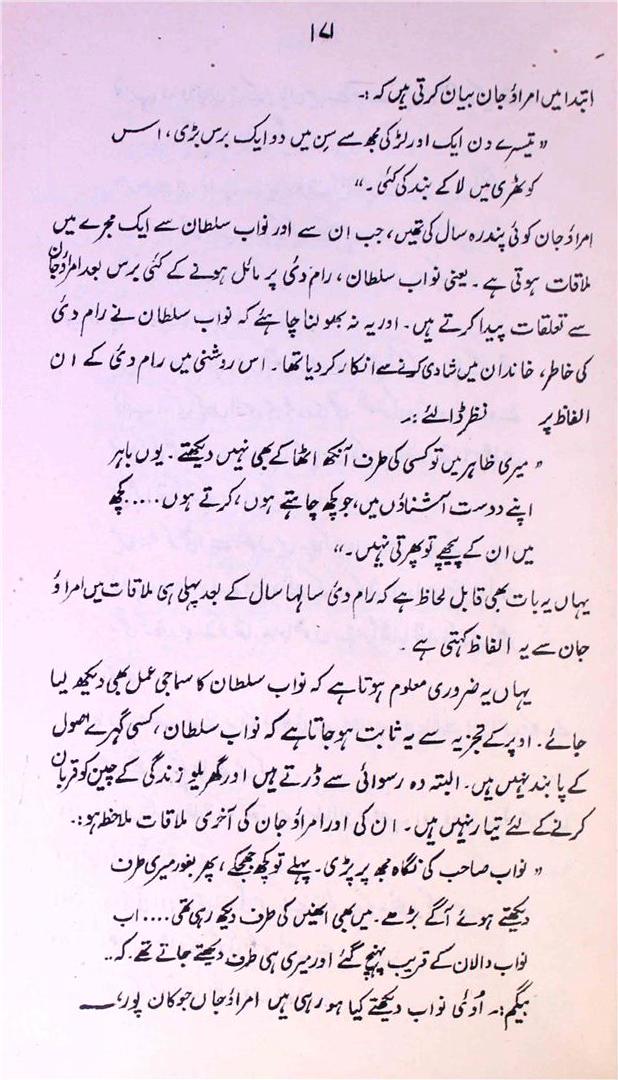 ۱۷
ابتدا میں امراؤ جان بیان کرتی ہیں کہ :۔
"تیسرے دن ایک اور لڑکی مجھ سے سِن میں دو ایک برس بڑی، اس
کوٹھری میں لا کے بند کی گئی۔"
امراؤ جان کوئی پندرہ سال کی تھیں، جب ان سے اور نواب سلطان سے ایک مجرے میں
ملاقات ہوتی ہے۔ یعنی نواب سلطان، رام دئی پر مائل ہونے کے کئی برس بعد امراؤ جان
سے تعلقات پیدا کرتے ہیں۔ اور یہ نہ بھولنا چاہئے کہ نواب سلطان نے رام دئی
کی خاطر، خاندان میں شادی کرنے سے انکار کر دیا تھا۔ اس روشنی میں رام دئی کے ان
الفاظ پر نظر ڈالئے :۔
"میری ظاہر میں تو کسی کی طرف آنکھ اٹھا کے بھی نہیں دیکھتے۔ یوں باہر
اپنے دوست آشناؤں میں، جو کچھ چاہتے ہوں، کرتے ہوں ..... کچھ
میں ان کے پیچھے تو پھرتی نہیں۔"
یہاں یہ بات بھی قابل لحاظ ہے کہ رام دئی سالہا سال کے بعد پہلی ہی ملاقات میں امراؤ
جان سے یہ الفاظ کہتی ہے۔
یہاں یہ ضروری معلوم ہوتا ہے کہ نواب سلطان کا سماجی عمل بھی دیکھ لیا
جائے۔ اوپر کے تجزیہ سے یہ ثابت ہو جاتا ہے کہ نواب سلطان، کسی گہرے اصول
کے پابند نہیں ہیں۔ البتہ وہ رسوائی سے ڈرتے ہیں اور گھریلو زندگی کے چین کو قربان
کرنے کے لئے تیار نہیں ہیں۔ ان کی اور امراؤ جان کی آخری ملاقات ملاحظہ ہو :۔
"نواب صاحب کی نگاہ مجھ پر پڑی۔ پہلے تو کچھ جھجکے، پھر بغور میری طرف
دیکھتے ہوئے آگے بڑھے۔ میں بھی انھیں کی طرف دیکھ رہی تھی .... اب
نواب دالان کے قریب پہنچ گئے اور میری ہی طرف دیکھتے جاتے تھے کہ ..
بیگم :۔ اُوئی نواب دیکھتے کیا ہو رہی ہیں امراؤ جاں جو کان پور،